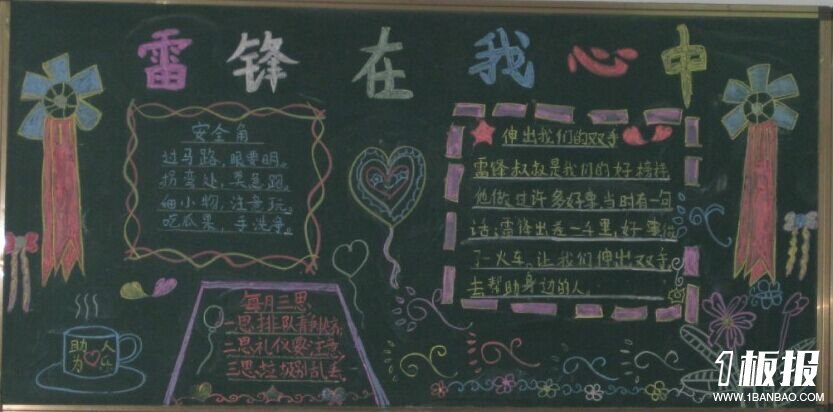 雷锋在我心中
安全角
过马路,眼要明。
拐弯处,莫急跑。
细小物,注意玩。
吃瓜果,手洗净。
伸出我们的双手
雷锋叔叔是我们的好榜样
他做过许多好事当时有一句
话:雷锋出差一千里,好事做
了一火车。让我们伸出双手
去帮助身边的人。
每月三思
一思排队静快齐
二思礼仪要注意
三思垃圾别乱丢
助人
为乐
1板报
WWW.1BANBAO.COM